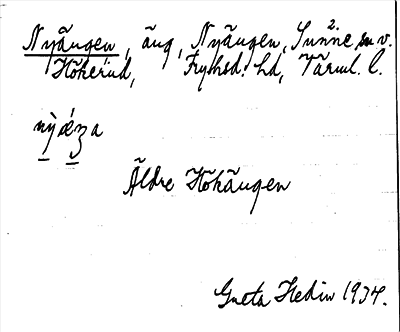 Nyängen, äng, Nyängen, Sunne sn v.
Hökerud, Fryksd. hd, Värml. l.
nỳǽza
Äldre Hökängen
Greta Hedin 1934.